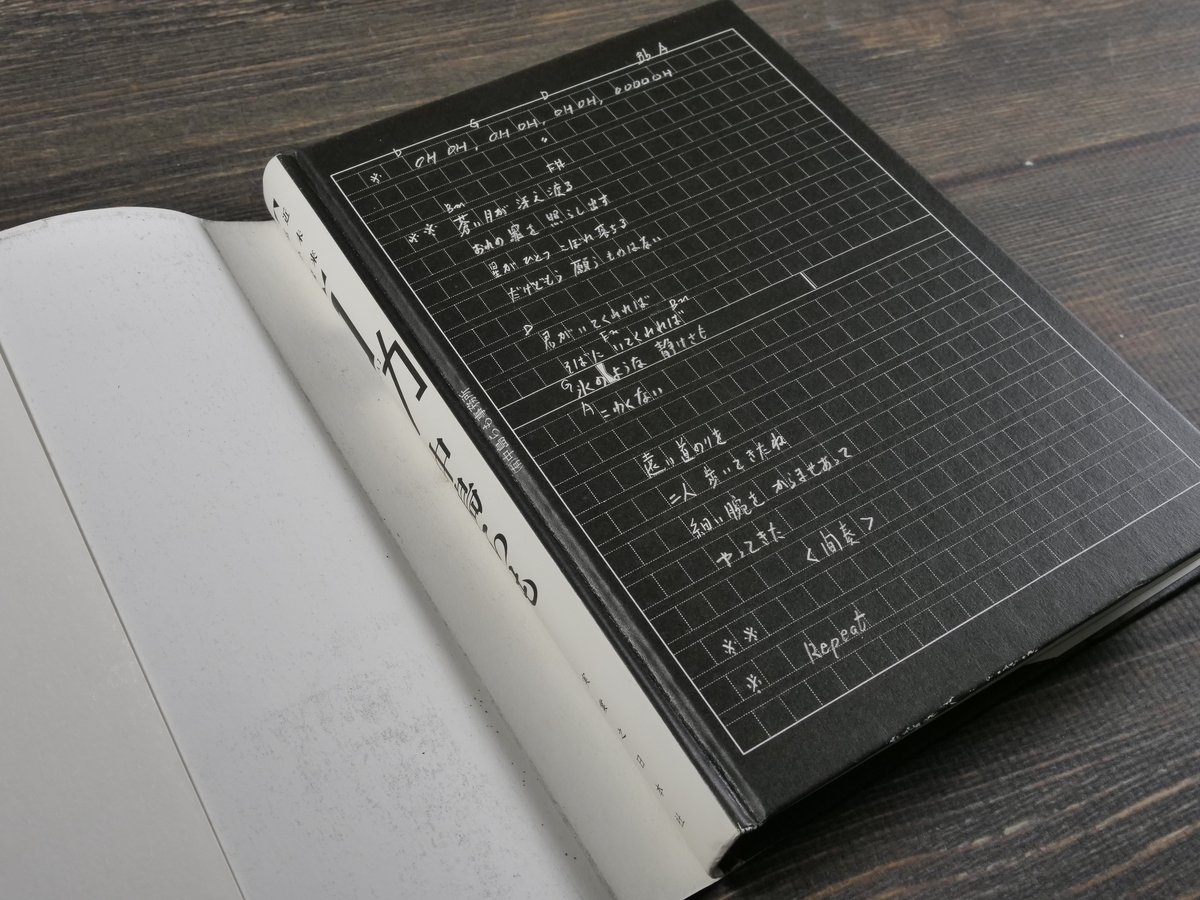 D G D Bb A
※ OH OH, OH OH, OH OH, OOOOOH
〃
Bm F#
※※ 蒼い月が 冴え渡る
おれの窓を 照らし出す
星がひとつ こぼれ落ちる
だけどもう 願うものはない
D 君がいてくれれば Bm
そばに いてくれれば
G 氷のような 静けさも
A こわくない
遠い道のりを
二人 歩いてきたね
細い腕を からませあって
やってきた
<間奏>
※※
※ Repeat
中島らも事務所
中島らも
実業之日本社